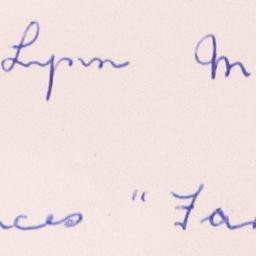 Lynn M
ces "Fa